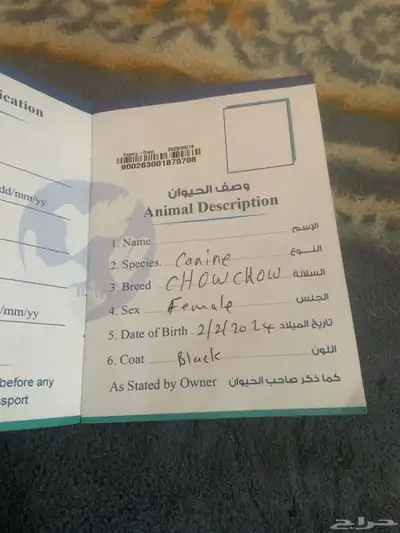 ication
dd/mm/yy
m/yy
before any
sport
Expiry - Date
900263001879706
وصف الحيوان
Animal Description
1. Name الإسم
2. Species Canine النوع
3. Breed CHOWCHOW السلالة
4. Sex Female الجنس
5. Date of Birth 2/2/2024 تاريخ الميلاد
6. Coat Black اللون
As Stated by Owner كما ذكر صاحب الحيوان
حراج